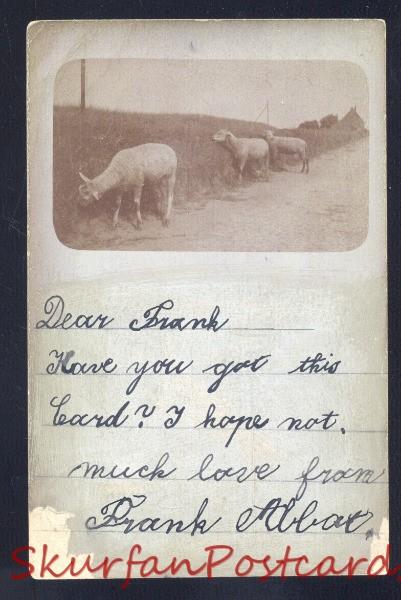 Dear Frank
Have you got this
Card? I hope not.
much love from
Frank Abbat.
SkurfanPostcards